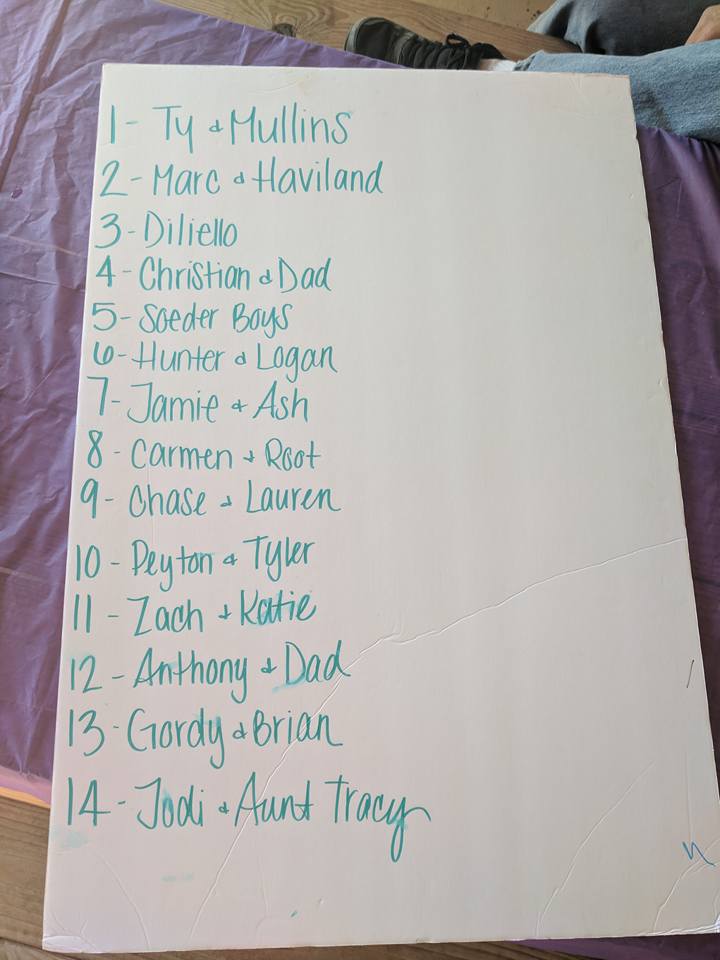 1- Ty & Mullins
2- Marc & Haviland
3- Diliello
4- Christian & Dad
5- Soeder Boys
6- Hunter & Logan
7- Jamie & Ash
8- Carmen & Root
9- Chase & Lauren
10- Peyton & Tyler
11- Zach & Katie
12- Anthony & Dad
13- Gordy & Brian
14- Jodi & Aunt Tracy